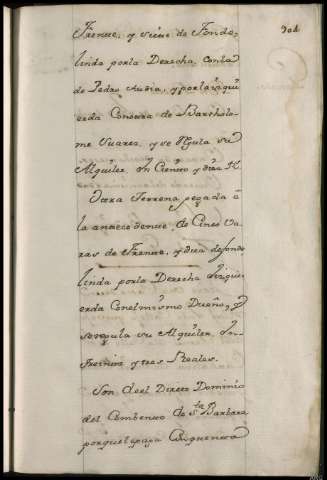 301
Frente, y siete de Fondo,
linda por la Derecha, con la
de Pedro Audia, y por la izqui
erda Con otra de Bartholo-
me Suarez, y se regula su
Alquiler en Ciento y diez Rs.
Otra Terrena pegada â
la antecedente, de Cinco Va
ras de Frente, y diez de fondo,
linda por la Derecha è izqui
erda Con el mismo Dueño, y
se regula su Alquiler en
treinta y tres Reales.
Son de el Directo Dominio
del Combento de Sta. Barbara
por que le paga Cinquenta